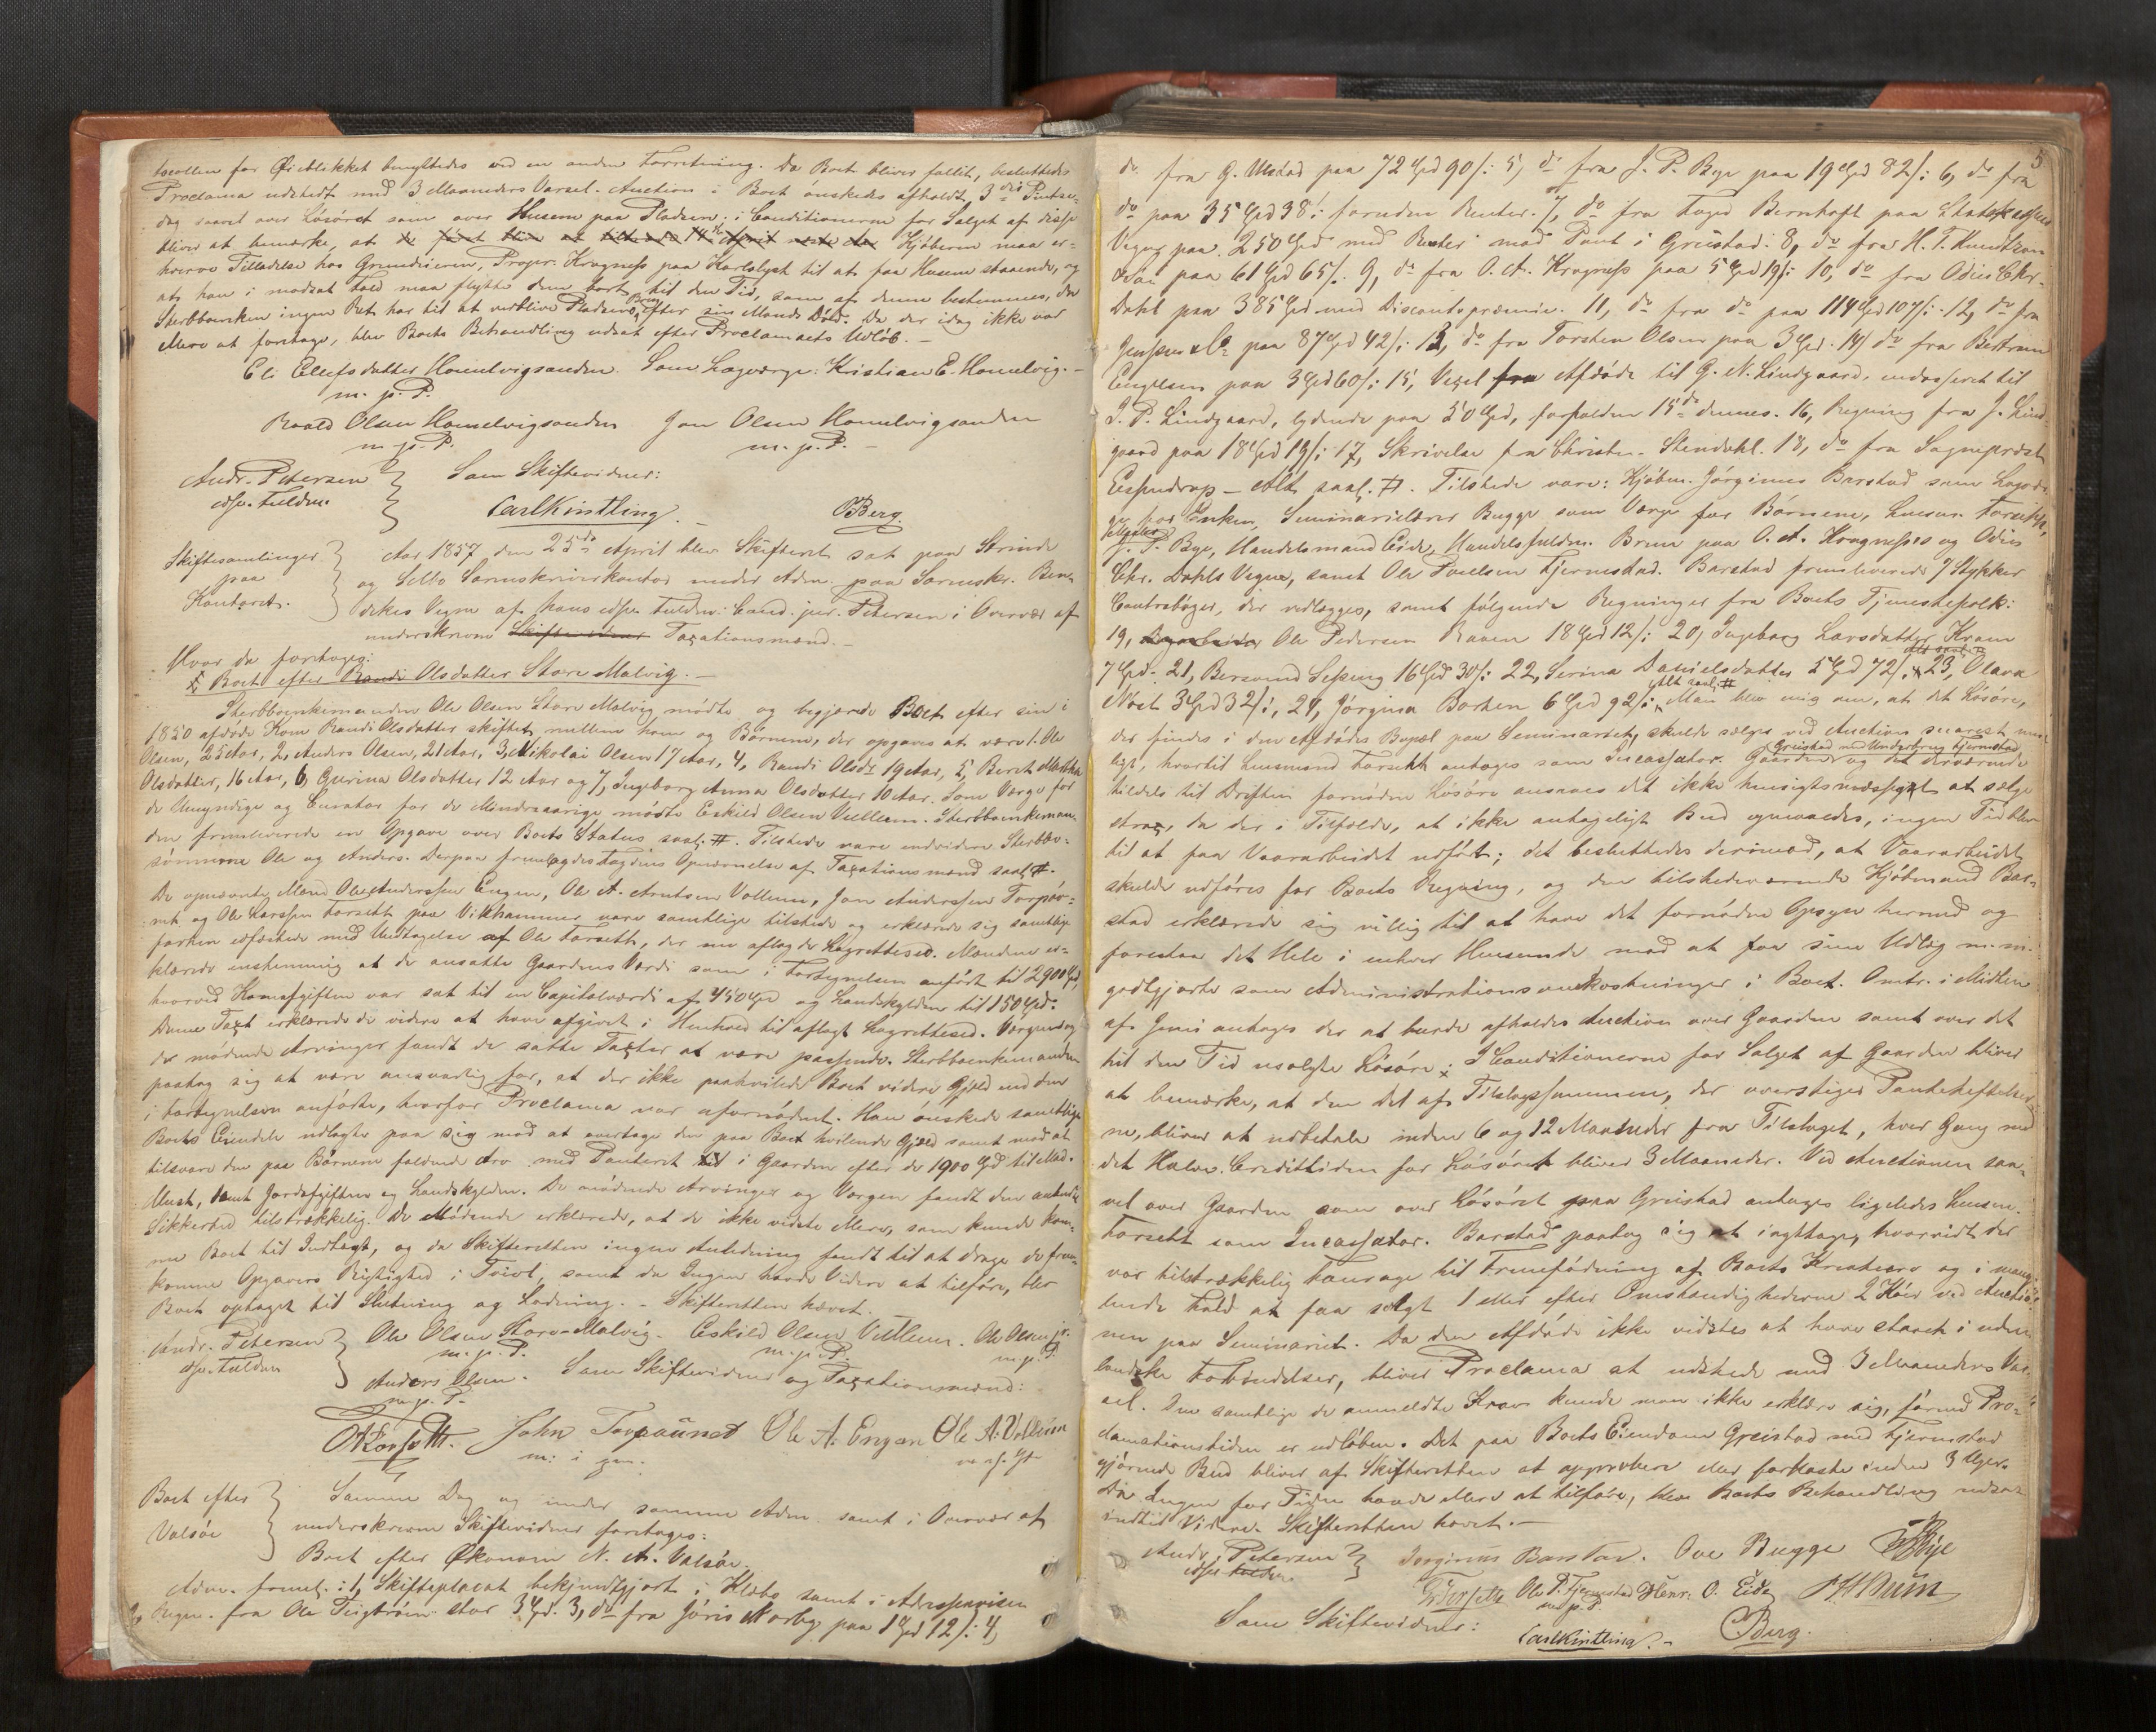 tocollen for Øieblikket benyttedes ved en anden Forretning. Da Boet bliver fallit, besluttedes
Proclama udstedt med 3 Maaneders Varsel. Auction i Boet ønskedes afholdt 3die Pintse-
dag saavel over Løsøret som over Husene paa Pladsen. i Conditionerne for Salget af disse
bliver at bemærke, at Kjøberen maa er-
hverve Tilladelse hos Grundeieren, Propr. Krogness paa Karlslyst til at faa Husene staaende, og
at han i modsat Fald maa flytte dem bort til den Tid, som af denne bestemmes, da
Sterbboenken ingen Ret har til at vedblive Pladsens Brug efter sin Mands Død. Da der idag ikke var
Mere at foretage, blev Boets Behandling udsat efter Proclamaets Udløb. –
Eli Ellefsdatter Homelvigsanden. Som Laugværge: Kristian E. Homelvig. –
m. p. P.
Roald Olsen Homelvigsanden Jon Olsen Homelvigsanden
m. p. P. m. p. P. –
Andr. Petersen Som Skiftevidner:
edsv. Fuldm. Carl Kintling. – OBerg.
Skiftesamlinger Aar 1857 den 25de April blev Skifteret sat paa Strinde
paa og Selbo Sorenskriverkontor under Adm. paa Sorenskr. Ben-
Kontoret. dekes Vegne af hans edsv. Fuldm. Cand. jur. Petersen i Overvær af
underskrevne Skiftevidner Taxationsmænd. –
Hvor da foretoges:
Boet efter Randi Olsdatter Store Malvig. –
Sterbboenkemanden Ole Olsen Store Malvig mødte og begjærede Boet efter sin i
1850 afdøde Kone Randi Olsdatter skiftet mellem ham og Børnene, der opgaves at være 1. Ole
Olsen, 25 Aar, 2, Anders Olsen, 21 Aar, 3, Nikolai Olsen 17 Aar, 4, Randi Olsdr 19 Aar, 5, Beret Martha
Olsdatter, 16 Aar, 6, Gurina Olsdatter 12 Aar og 7, Ingeborg Anna Olsdatter 10 Aar. Som Værge for
de Umyndige og Curator for de Mindreaarige mødte Eskild Olsen Vullum. Sterbboenkeman-
den fremleverede en Opgave over Boets Status saal. #. Tilstede vare endvidere Sterbbo-
sønnerne Ole og Anders. Derpaa fremlagdes Fogdens Opnævnelse af Taxationsmænd saal. #.
De opnævnte Mænd Ole Anderssen Engen, Ole A. Arntsen Vollum, Jon Anderssen Torpou-
net og Ole Larssen Forseth paa Vikhammer vare samtlige tilstede og erklærede sig samtlige
forhen edfæstede med Undtagelse af Ole Forseth, der nu aflagde Lagretteed. Mændene er-
klærede enstemmig at de ansatte Gaardens Værdi som i Fortegnelsen anført til 2900 Spd,
hvorved Kornafgiften var sat til en Capitalværdi af 450 Spd og Landskylden til 150 Spd.
Denne Taxt erklærede de videre at have afgivet i Henhold til aflagt Lagretteed. Værgen og
de mødende Arvinger fandt de satte Taxter at være passende. Sterbboenkemanden
paatog sig at være ansvarlig for, at der ikke paahvilede Boet videre Gjæld end den
i Fortegnelsen anførte, hvorfor Proclama var ufornødent. Han ønskede samtlige
Boets Eiendele udlagte paa sig mod at overtage den paa Boet hvilende Gjæld samt mod at
tilsvare den paa Børnene faldende Arv med Panteret i Gaarden efter de 1900 Spd til Mad.
Must, samt Jordafgiften og Landskylden. De mødende Arvinger og Værgen fandt den anbudte
Sikkerhed tilstrækkelig. De Mødende erklærede, at de ikke vidste Mere, som kunde kom-
me Boet til Indtægt, og da Skifteretten ingen Anledning fandt til at drage de frem-
komne Opgavers Rigtighed i Tvivl, samt da Ingen havde Videre at tilføre, blev
Boet optaget til Slutning og Lodning. – Skifteretten hævet.
Andr. Petersen Ole Olsen Store-Malvig. Eskild Olsen Vullum. Ole Olsen jr.
edsv. Fuldm m. p. P. m. p. P. m. p. P.
Anders Olsen. Som Skiftevidner og Taxationsmænd:
m. p. P.
OLForseth. John Torpaunet Ole A. Engen Ole A. Vollum
m: i pen.
Boet efter Samme Dag og under samme Adm. samt i Overvær af
Valsøe underskrevne Skiftevidner foretoges:
Boet efter Økonom N. A. Valsøe.
Adm. freml. 1, Skifteplacat bekjendtgjort i Klæbo samt i Adresseavisen
2, Regn. fra Ole Tingstrøm stor 3 Spd. 3, do fra Jøris Norby paa 1 Spd 12 /: 4,
5
do fra G. Mstad paa 72 Spd 90 /: 5, do fra J. P. Bye paa 19 Spd 82 /: 6, do fra
do paa 35 Spd 38 /: foruden Renter. 7, do fra Foged Bernhoft paa Statskassens
Vegne paa 250 Spd med Renter mod Pant i Greistad. 8, do fra H. T. Knudtzon
paa 61 Spd 65 /. 9, do fra O. A. Krogness paa 5 Spd 19 /: 10, do fra Odin Chr.
Dahl paa 385 Spd med Discontopræmie. 11, do fra do paa 114 Spd 107 /: 12, do fra
Jenssen & Co paa 87 Spd 42 /: 13, do fra Torsten Olsen paa 3 Spd. 14, do fra Bertram
Engelsen paa 3 Spd 60 /: 15, Vexel fra Afdøde til G. N. Lindgaard, endosseret til
J. P. Lindgaard, lydende paa 50 Spd, forfalden 15de dennes. 16, Regning fra J. Lind-
gaard paa 18 Spd 19 /: 17, Skrivelse fra Christen Stendahl. 18, do fra Sogneprest
Eckendrop – Alt saal. #. Tilstede vare: Kjøbm. Jørginus Barstad som Laugvær-
ge for Enken, Seminarielærer Bugge som Værge for Børnene, Lensm. Forseth,
J. P. Bye, Handelsmand Eide, Handelsfuldm. Bruun paa O. A. Krognesses og Odin
Chr. Dahls Vegne, samt Ole Povelsen Fjernestad. Barstad fremleverede 7 Stykker
Contrabøger, der vedlægges, samt følgende Regninger fra Boets Tjenestefolk:
19, Ole Pedersen Raaen 18 Spd 12 /: 20, Ingeborg Larsdatter Kram
7 Spd. 21, Berevend Sesseng 16 Spd 30 /: 22, Serina Danielsdatter 5 Spd 72 /. 23, Olava
Næst 3 Spd 32 /:, 24, Jørgina Barken 6 Spd 92 /: Alt saal. # Man blev enig om, at det Løsøre,
der findes i den Afdødes Bopæl paa Seminariet, skulde sælges ved Auction snarest mu-
ligt, hvortil Lensmand Forseth antages som Incassator. Gaarden Greistad med Underbrug Fjernestad og det derværende
tildels til Driften fornødne Løsøre ansaaes det ikke hensigtsmæssigt at sælge
strax, da der i Tilfælde, at ikke antageligt Bud opnaaedes, ingen Tid blev
til at faa Vaararbeidet udført; det besluttedes derimod, at Vaararbeidet
skulde udføres for Boets Regning, og den tilstedeværende Kjøbmand Bar-
stad erklærede sig villig til at have det fornødne Opsyn hermed og
forestaa det Hele i enhver Henseende mod at faa sine Udlæg m. m.
godtgjorte som Administrationsomkostninger i Boet. Omtr. i Midten
af Juni antoges der at burde afholdes Auction over Gaarden samt over det
til den Tid usolgte Løsøre; I Conditionerne for Salget af Gaarden bliver
at bemærke, at den Del af Tilslagssummen, der overstiger Pantehæftelser-
ne, bliver at udbetale inden 6 og 12 Maaneder fra Tilslaget, hver Gang med
det Halve. Credittiden for Løsøret bliver 3 Maaneder. Ved Auctionen saa-
vel over Gaarden som over Løsøret paa Greistad antages ligeledes Lensm.
Forseth som Incassator. Barstad paatog sig at iagttage, hvorvidt der
var tilstrækkelig Fourage til Fremfødning af Boets Kreature og i mang-
lende Fald at faa solgt 1 eller efter Omstændighederne 2 Køer ved Auctio-
nen paa Seminariet. Da den Afdøde ikke vidstes at have staaet i uden-
landske Forbindelser, bliver Proclama at udstede med 3 Maaneders Var-
sel. Om samtlige de anmeldte Krav kunde man ikke erklære sig, førend Pro-
clamationstiden er udløben. Det paa Boets Eiendom Greistad med Fjernestad
gjørende Bud bliver af Skifteretten at approbere eller forkaste inden 3 Uger.
Da Ingen for Tiden havde Mere at tilføre, blev Boets Behandling udsat
indtil Videre. Skifteretten hævet. –
Andr. Petersen Jørginus Barstad. Ove Bugge JPBye
edsv. Fuldm.
Forseth Ole P. Fjernestad Henr. O. Eide Bruun
m. p. P.
Som Skiftevidner: Carl Kintling. – OBerg.